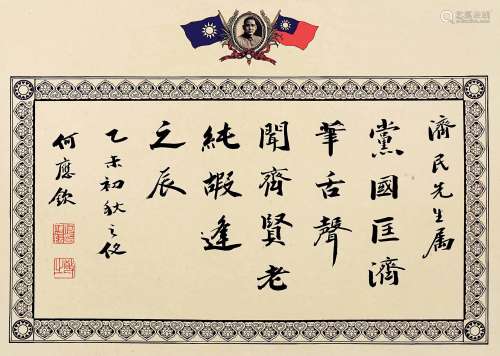 濟民先生属
黨國匡濟
筆舌聲
聞齊賢老
純嘏逢
之辰
乙未初秋之夜
何應欽